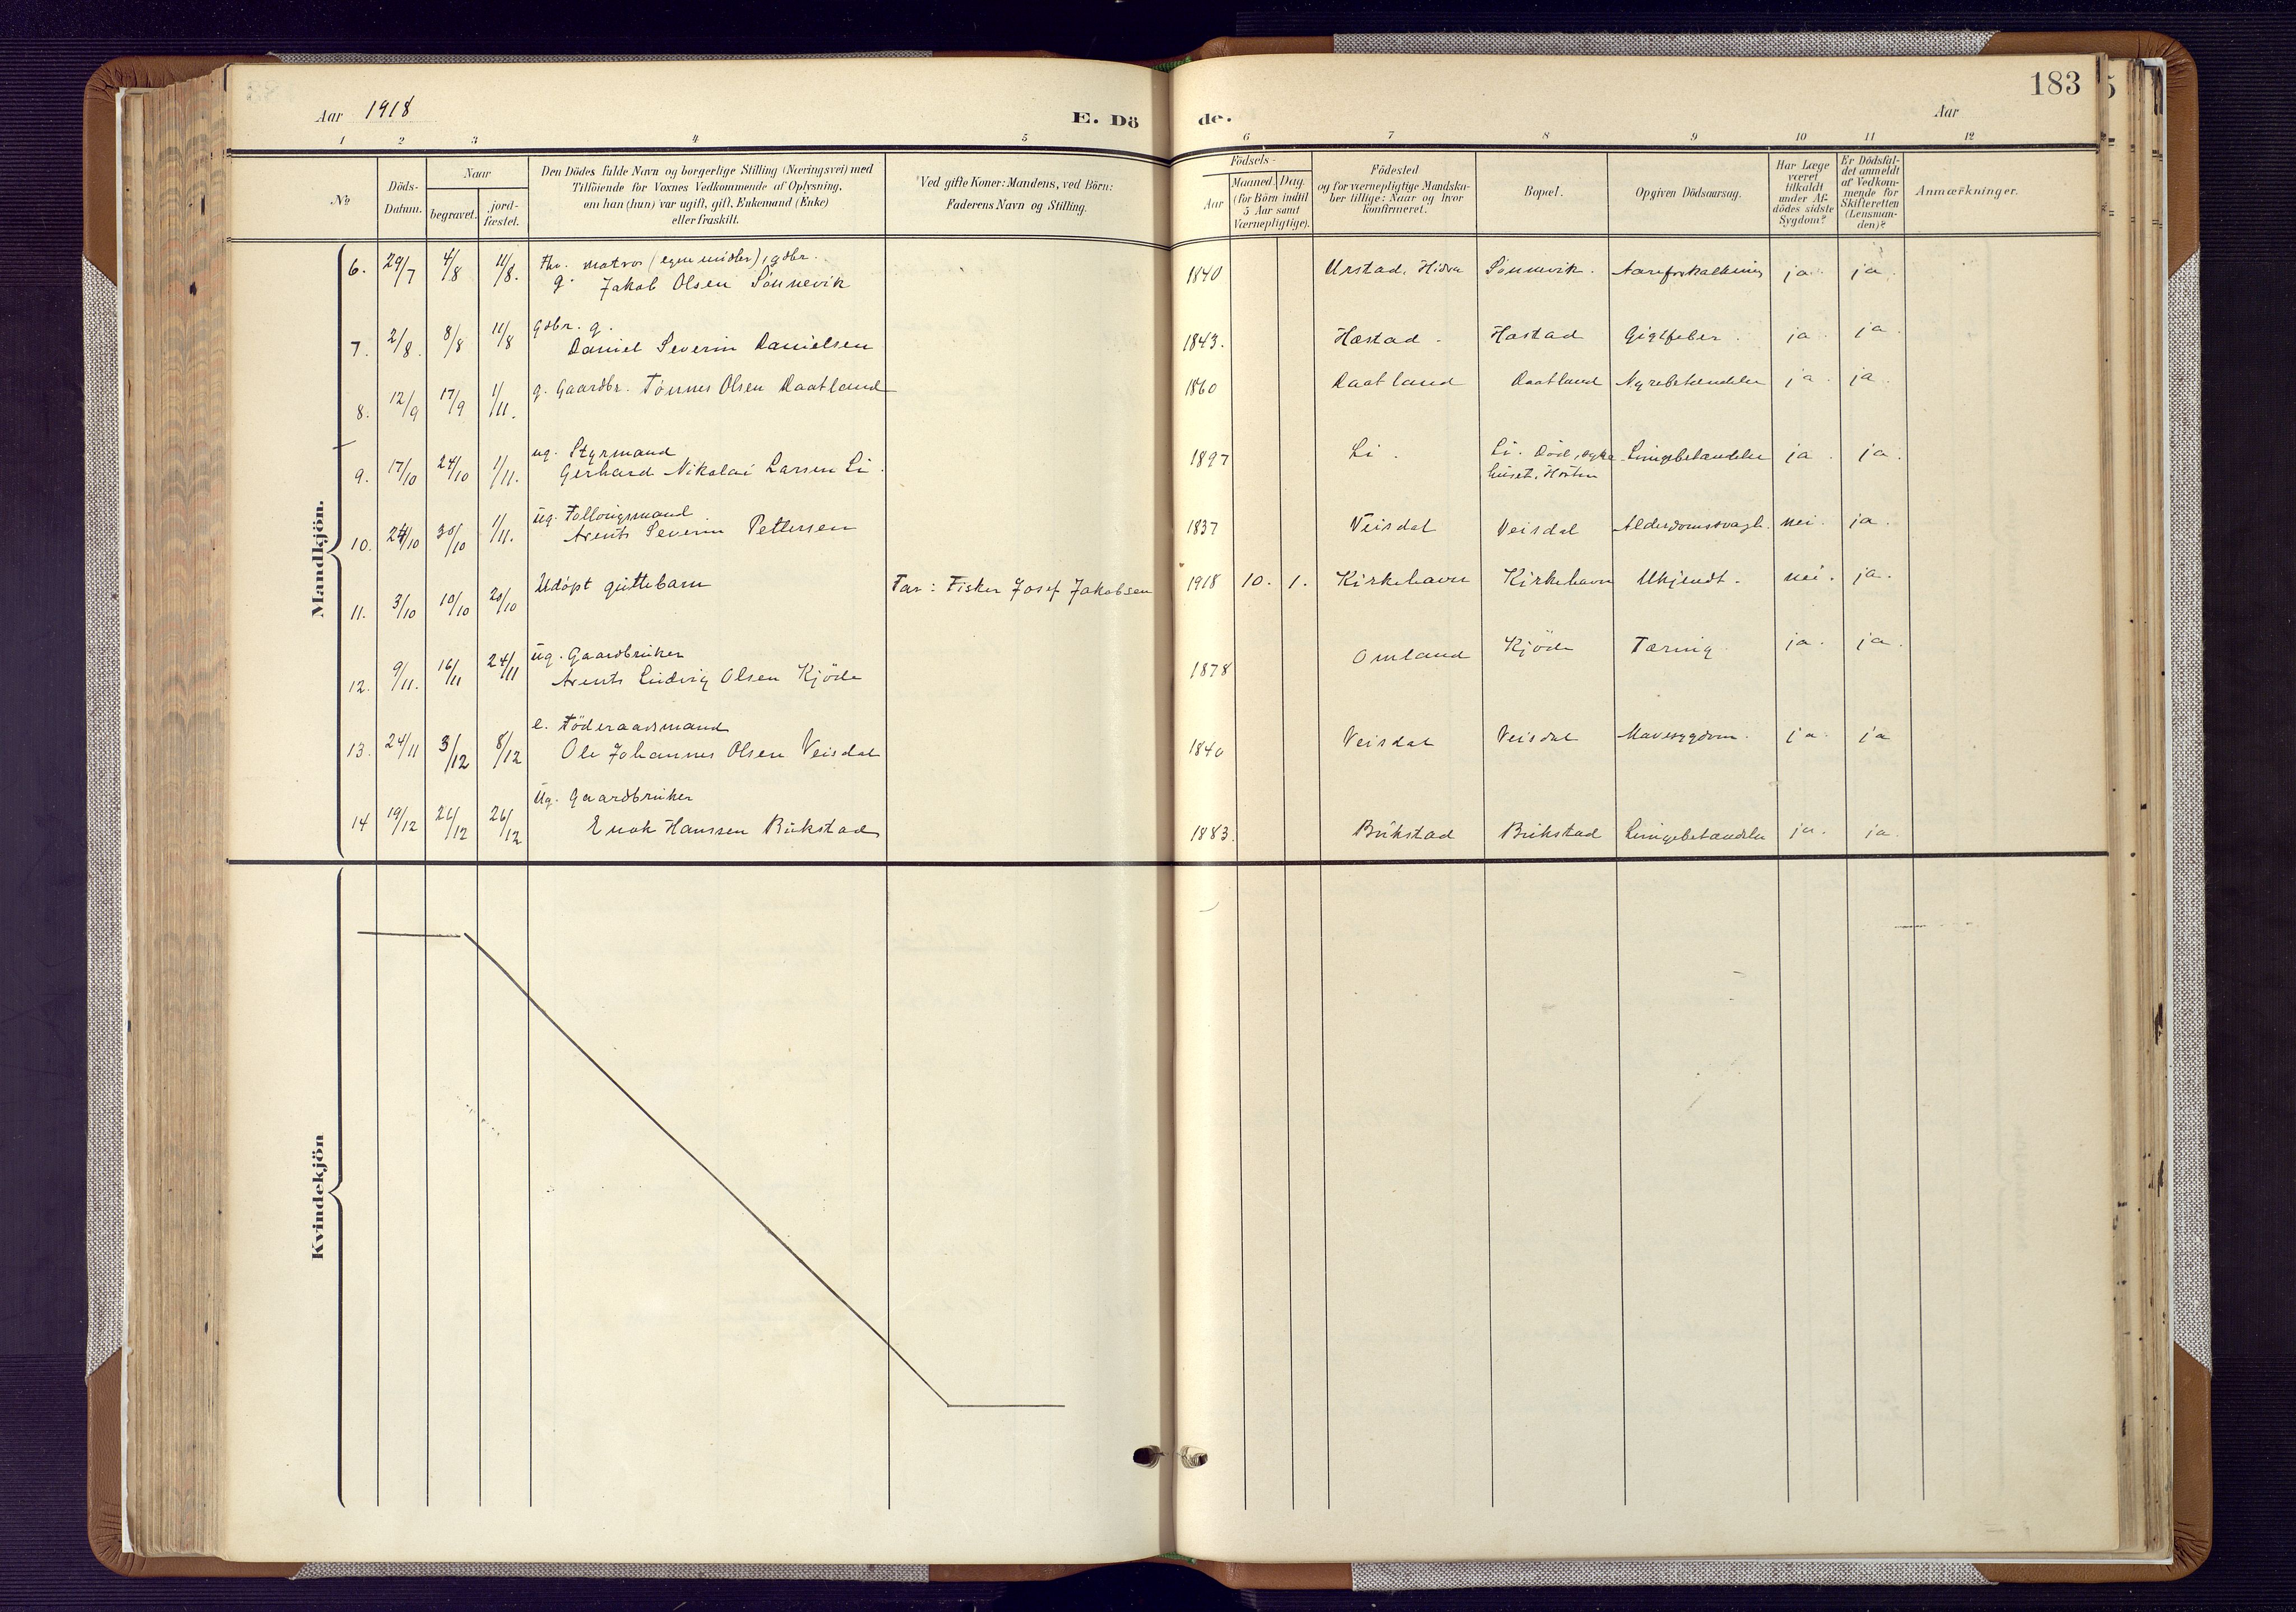 183
Aar 1918
E. Dö de.
Aar
1 2 3 4 5 6 7 8 9 10 11 12
№
Döds-
Datum.
Naar
begravet.
jord-
fæstet.
Den Dödes fulde Navn og borgerlige Stilling (Næringsvei) med
Tilföiende for Voxnes Vedkommende af Oplysning,
om han (hun) var ugift, gift, Enkemand (Enke)
eller fraskilt.
Ved gifte Koner: Mandens, ved Börn:
Faderens Navn og Stilling.
Födsels-
Aar
Maaned. Dag.
(for Börn indtil
5 Aar samt
Værnepligtige).
Födested
og for værnepligtige Mandska-
ber tillige: Naar og hvor
konfirmeret.
Bopæl.
Opgiven Dödsaarsag.
Har Læge
været
tilkaldt
under Af-
dödes sidste
Sygdom?
Er Dödsfal-
det anmeldt
af Vedkom-
mende for
Skifteretten
(Lensman-
den)?
Anmærkninger.
Mandkjön.
6. 29/7 4/8 11/8. fhv. matros (egne midler), gdbr.
g. Jakob Olsen Sönnevik 1840 Urstad, Hidra Sönnevik. Aareforkalkning ja. ja.
7. 2/8. 8/8 11/8 Gdbr. g.
Daniel Severin Danielsen 1843. Hæstad. Hæstad Gigtfeber. ja. ja.
8. 12/9 17/9 1/11. g. Gaardbr. Tönnes Olsen Daatland 1860 Daatland Daatland Nyrebetændelse ja. ja.
9. 17/10 24/10 1/11. ug. Styrmand
Gerhard Nikolai Larsen Li. 1897 Li. Li. Död, syke
huset, Horten Lungebetændelse ja. ja.
10. 24/10 30/10 1/11. ug. Fattigmand
Arents Severin Pettersen 1837 Veisdal Veisdal Alderdomssvagh. nei. ja.
11. 3/10 10/10 20/10 Udöpt guttebarn Far: Fisker Josef Jakobsen 1918 10. 1. Kirkehavn Kirkehavn Ukjendt. nei. ja.
12. 9/11. 16/11 24/11 ug. Gaardbruker
Arents Ludvig Olsen Kjöde 1878 Omland Kjöde Tæring. ja. ja.
13. 24/11 3/12 8/12 e. Föderaadsmand
Ole Johannes Olsen Veisdal 1840 Veisdal Veisdal Mavesygdom. ja. ja
14 19/12 26/12 26/12 Ug. Gaardbruker
Enok Hanssen Bukstad 1883. Bukstad Bukstad Lungebetændelse ja. ja.
Kvindekjön